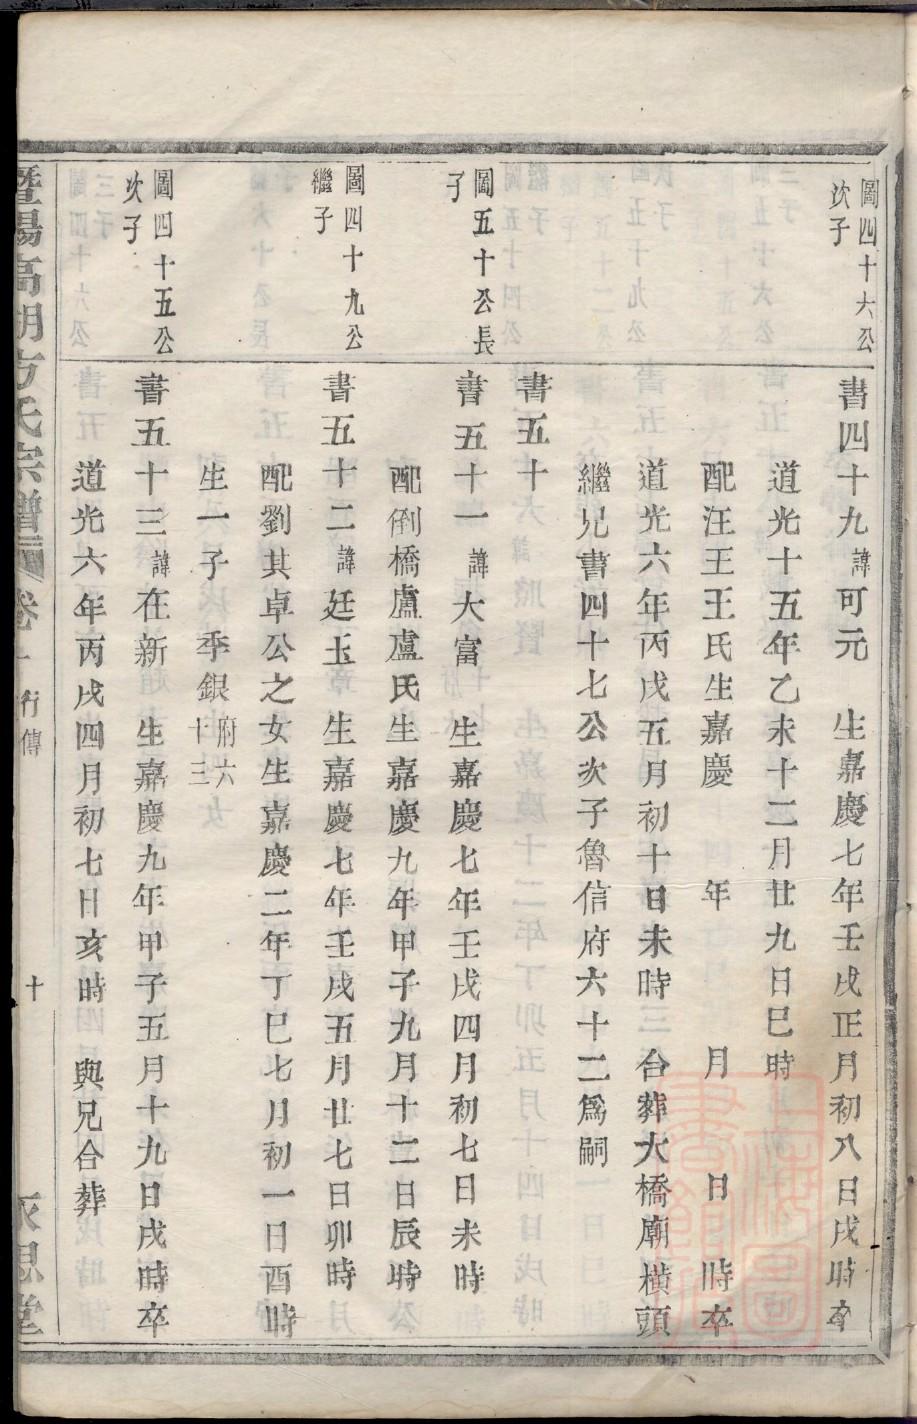 圖四十六公
次子
書四十九諱可元 生嘉慶七年壬戌正月初八日戌時卒
道光十五年乙未十二月廿九日巳時
配汪王王氏生嘉慶 年 月 日 時卒
道光六年丙戌五月初十日未時 合葬大橋廟橫頭
繼兄書四十七公次子魯信府六十二爲嗣
書五十
圖五十公長
子
書五十一諱大富 生嘉慶七年壬戌四月初七日未時
配倒橋盧盧氏生嘉慶九年甲子九月十二日辰時
圖四十九公
繼子
書五十二諱廷玉 生嘉慶七年壬戌五月廿七日卯時
配劉其卓公之女生嘉慶二年丁巳七月初一日酉時
生一子 季銀府六十三
圖四十五公
次子
書五十三諱在新 生嘉慶九年甲子五月十九日戌時卒
道光六年丙戌四月初七日亥時 與兄合葬
暨陽高湖方氏宗譜 卷 行傳 十 永思堂